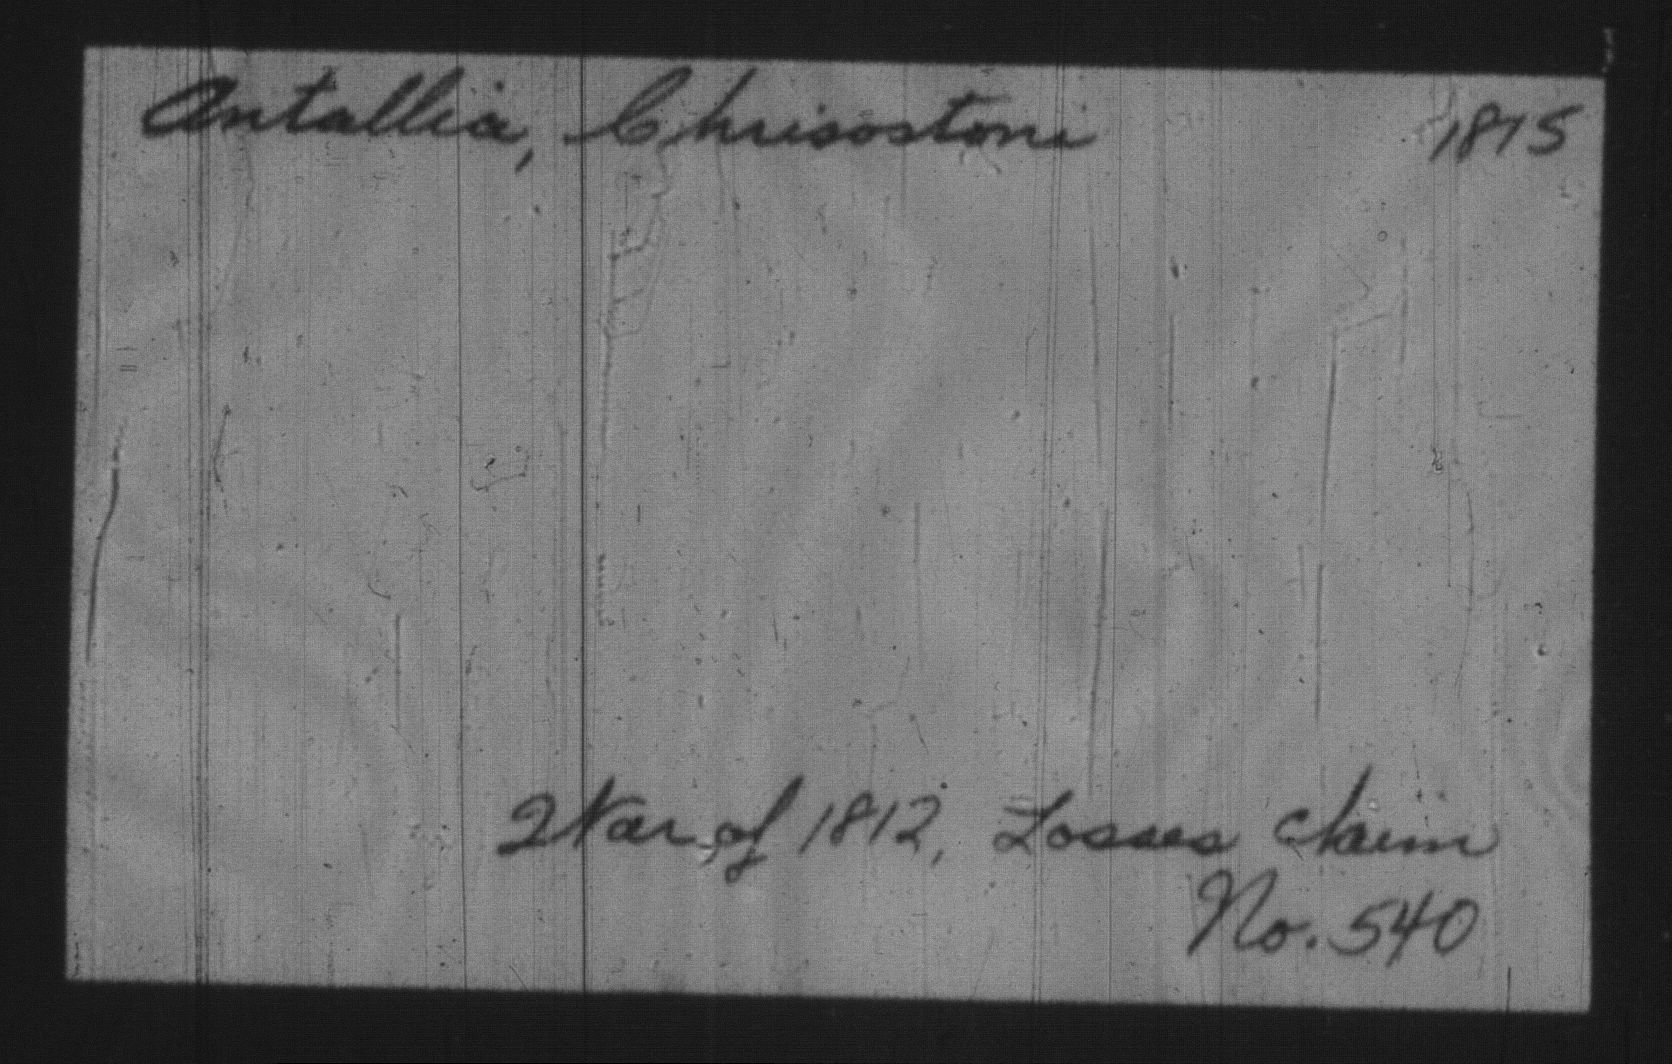 Antallia, Chrisostoni
1875
War of 1812, Losses claim
No. 540